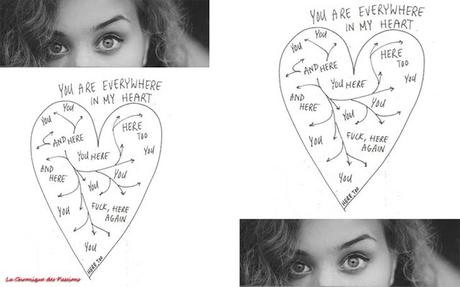 YOU ARE EVERYWHERE
IN MY HEART
YOU
YOU
AND HERE
HERE
TOO
YOU HERE
YOU
AND
HERE
YOU
YOU
YOU
FUCK, HERE
AGAIN
YOU
HERE TOO
La Chronique des Passions
YOU ARE EVERYWHERE
IN MY HEART
YOU
YOU
AND HERE
HERE
TOO
YOU HERE
AND
HERE
YOU
YOU
YOU
FUCK, HERE
AGAIN
YOU
HERE TOO